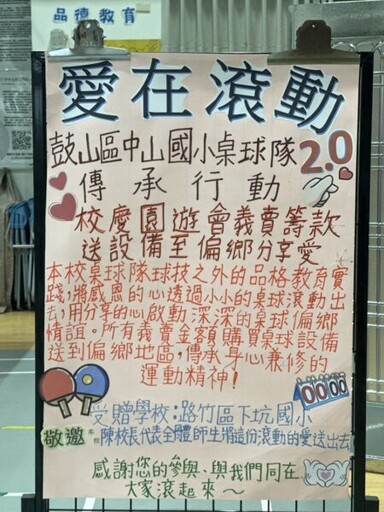 品德教育
愛在滾動
鼓山區中山國小桌球隊2.0
傳承行動
校慶園遊會義賣籌款
送設備至偏鄉分享愛
本校桌球隊球技之外的品格教育實
踐,將感恩的心透過小小的桌球滾動出
去,用分享的心啟動深深的桌球偏鄉
情誼。所有義賣金額購買桌球設備
送到偏鄉地區,傳承身心兼修的
運動精神!
受贈學校:路竹區下坑國小
敬邀 本校陳校長代表全體師生將這份滾動的愛送出去
感謝您的參與、與我們同在
大家滾起來~